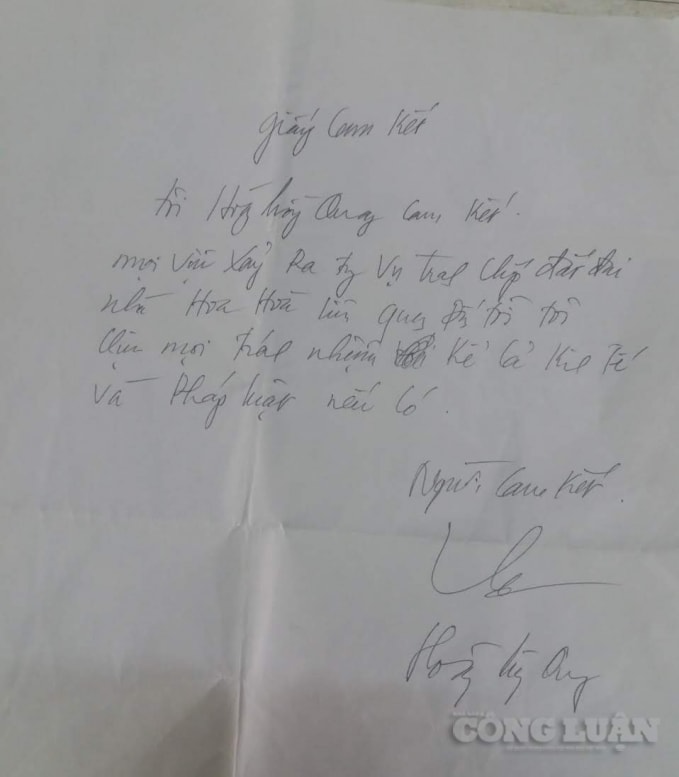 giấy Cam Kết
tôi Hoàng Quang Cam Kết.
mọi việc xảy Ra từ vụ tranh chấp đất đai
nhà Hoa Hoà liên quan đến tôi tôi
chịu mọi trách nhiệm kể cả kinh tế
và Pháp luật nếu có.
Người Cam Kết.
Hoàng
CÔNG LUẬN